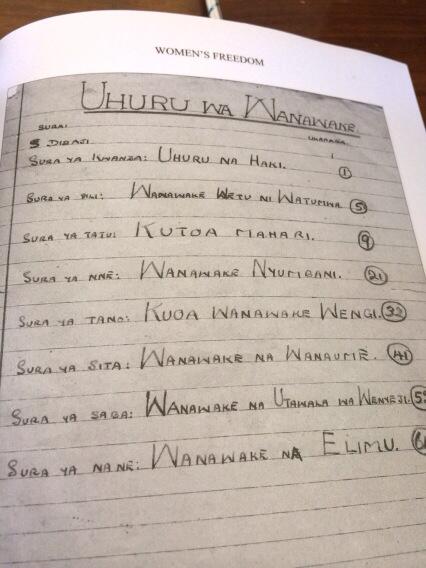 WOMEN'S FREEDOM
UHURU WA WANAWAKE.
SURA: UKARASA
DIBAJI i
SURA YA KWANZA: UHURU NA HAKI. 1
SURA YA PILI: WANAWAKE WETU NI WATUMWA 5
SURA YA TATU: KUTOA MAHARI. 9
SURA YA NNE: WANAWAKE NYUMBANI. 21
SURA YA TANO: KUOA WANAWAKE WENGI. 32
SURA YA SITA: WANAWAKE NA WANAUME. 41
SURA YA SABA: WANAWAKE NA UTAWALA WA WENYEJI.
SURA YA NANE: WANAWAKE NA ELIMU.